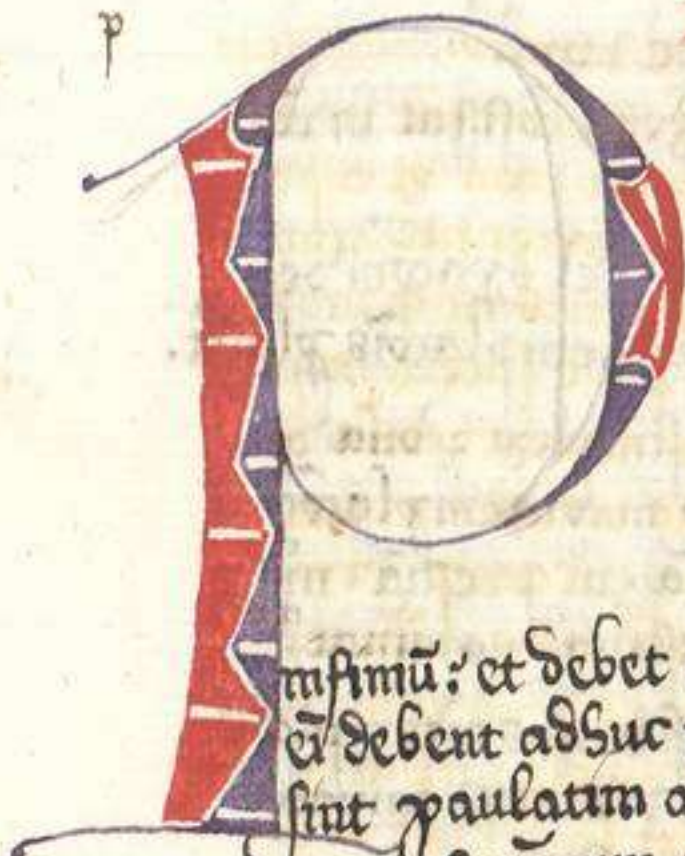 p
P
infimū: et debet
eī debent adhuc
sint paulatim a